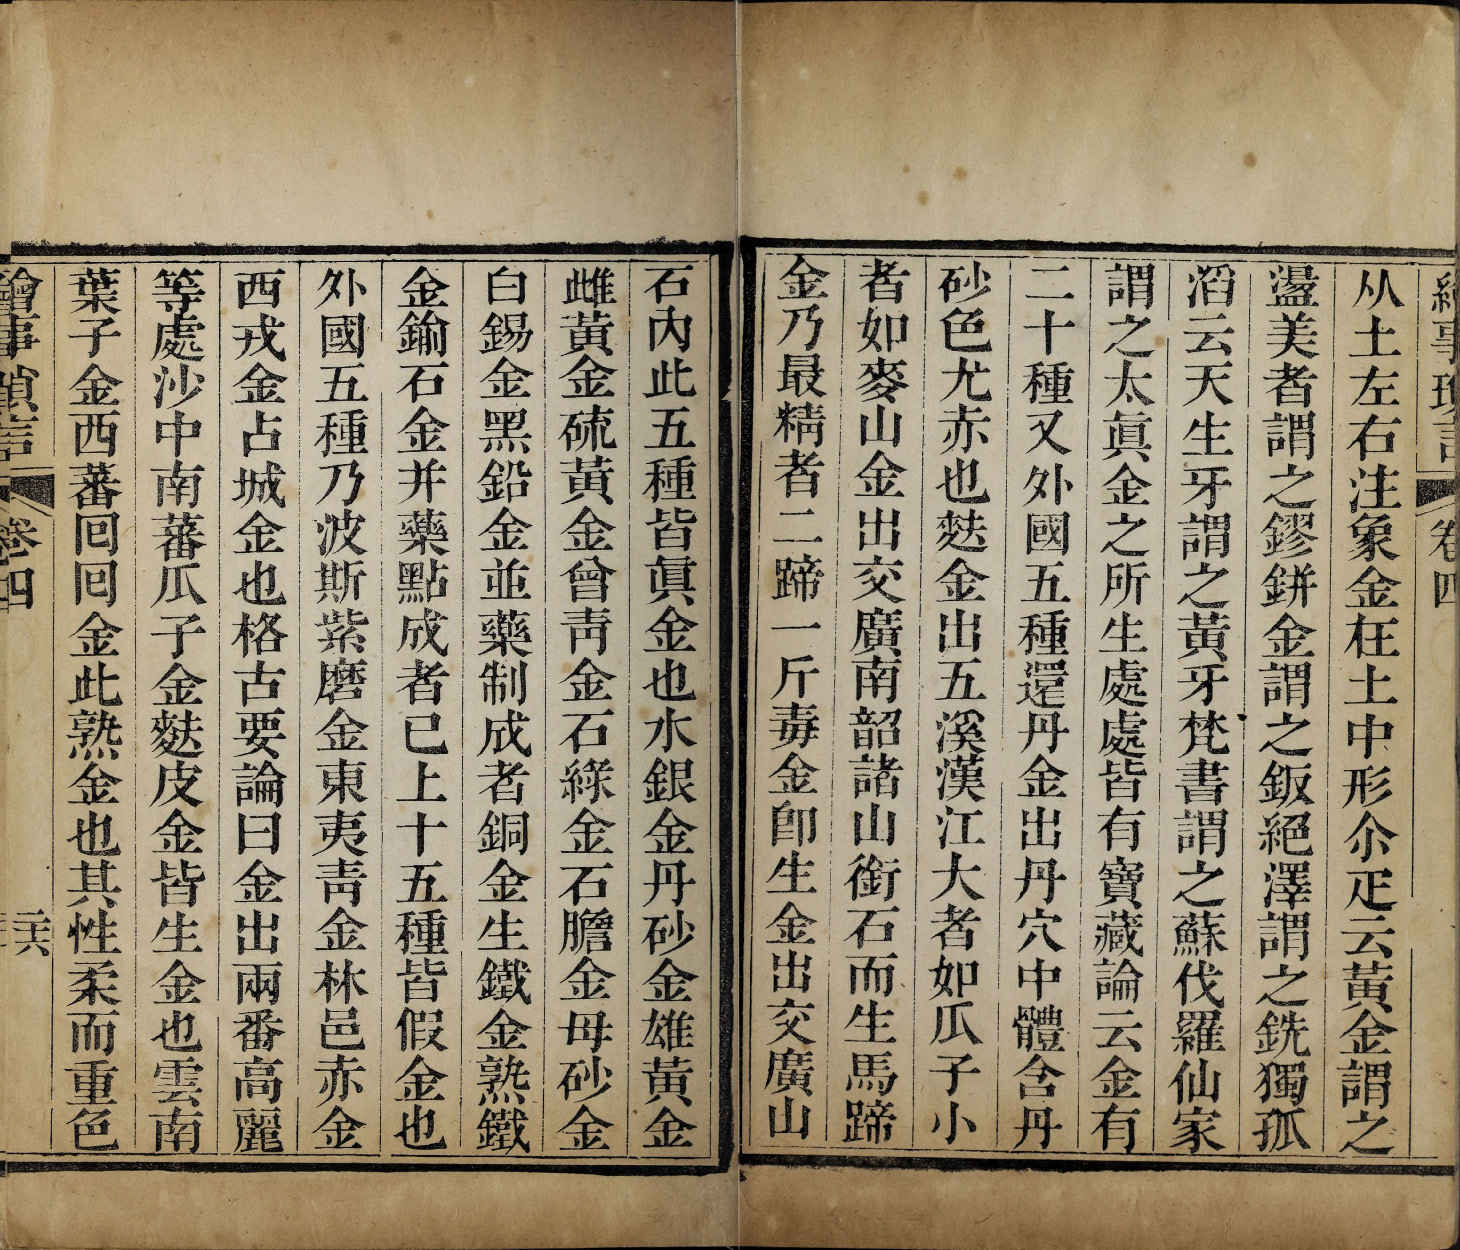 繪事瑣言
卷四
从土左右注象金在土中形尒疋云黃金謂之
璗美者謂之鏐鉼金謂之鈑絕澤謂之銑獨孤
滔云天生牙謂之黃牙梵書謂之蘇伐羅仙家
謂之太眞金之所生處處皆有寶藏論云金有
二十種又外國五種還丹金出丹穴中體含丹
砂色尤赤也麩金出五溪漢江大者如瓜子小
者如麥山金出交廣南韶諸山銜石而生馬蹄
金乃最精者二蹄一斤毒金卽生金出交廣山
石內此五種皆眞金也水銀金丹砂金雄黃金
雌黃金硫黃金曾靑金石綠金石膽金母砂金
白錫金黑鉛金並藥制成者銅金生鐵金熟鐵
金鍮石金并藥點成者已上十五種皆假金也
外國五種乃波斯紫磨金東夷靑金林邑赤金
西戎金占城金也格古要論曰金出兩番高麗
等處沙中南蕃瓜子金麩皮金皆生金也雲南
葉子金西蕃回回金此熟金也其性柔而重色
繪事瑣言
卷四
二六